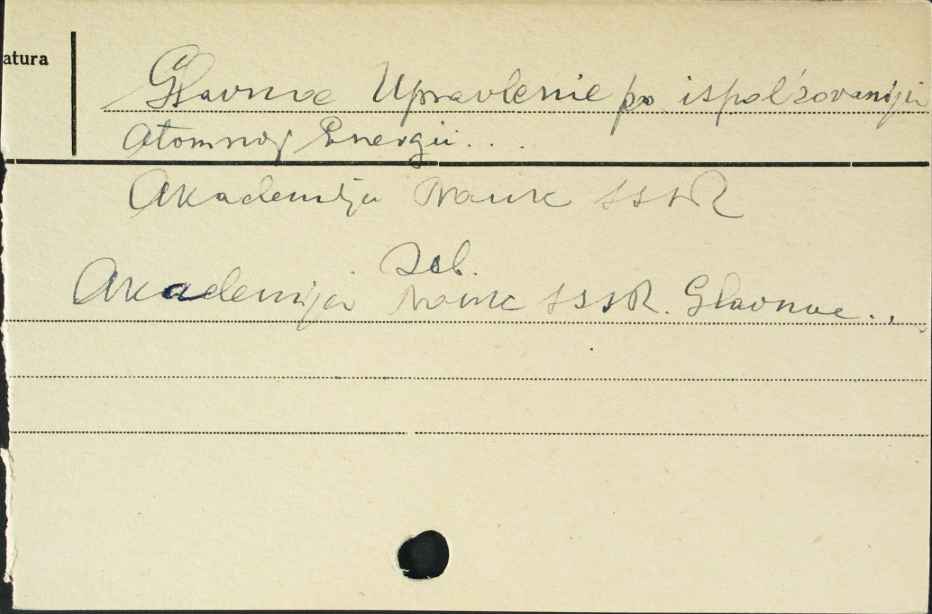 atura
Glavnoe Upravlenie po ispol'zovaniju
Atomnoj Energii...
Akademija Nauk SSSR
Akademija Nauk SSSR. Glavnoe..